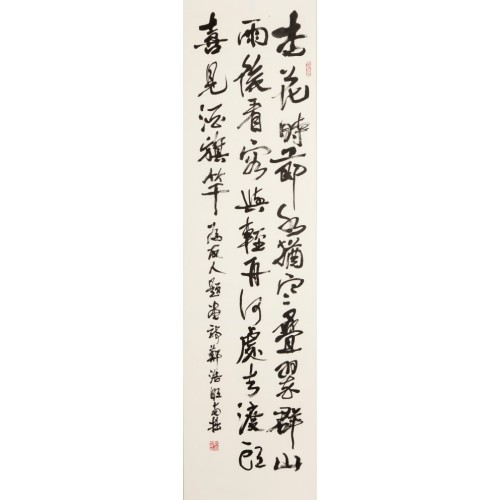 杏花時節水猶寒疊翠群山
雨後看容與輕舟何處去渡頭
喜見酒旗竿 為友人題畫詩鄭